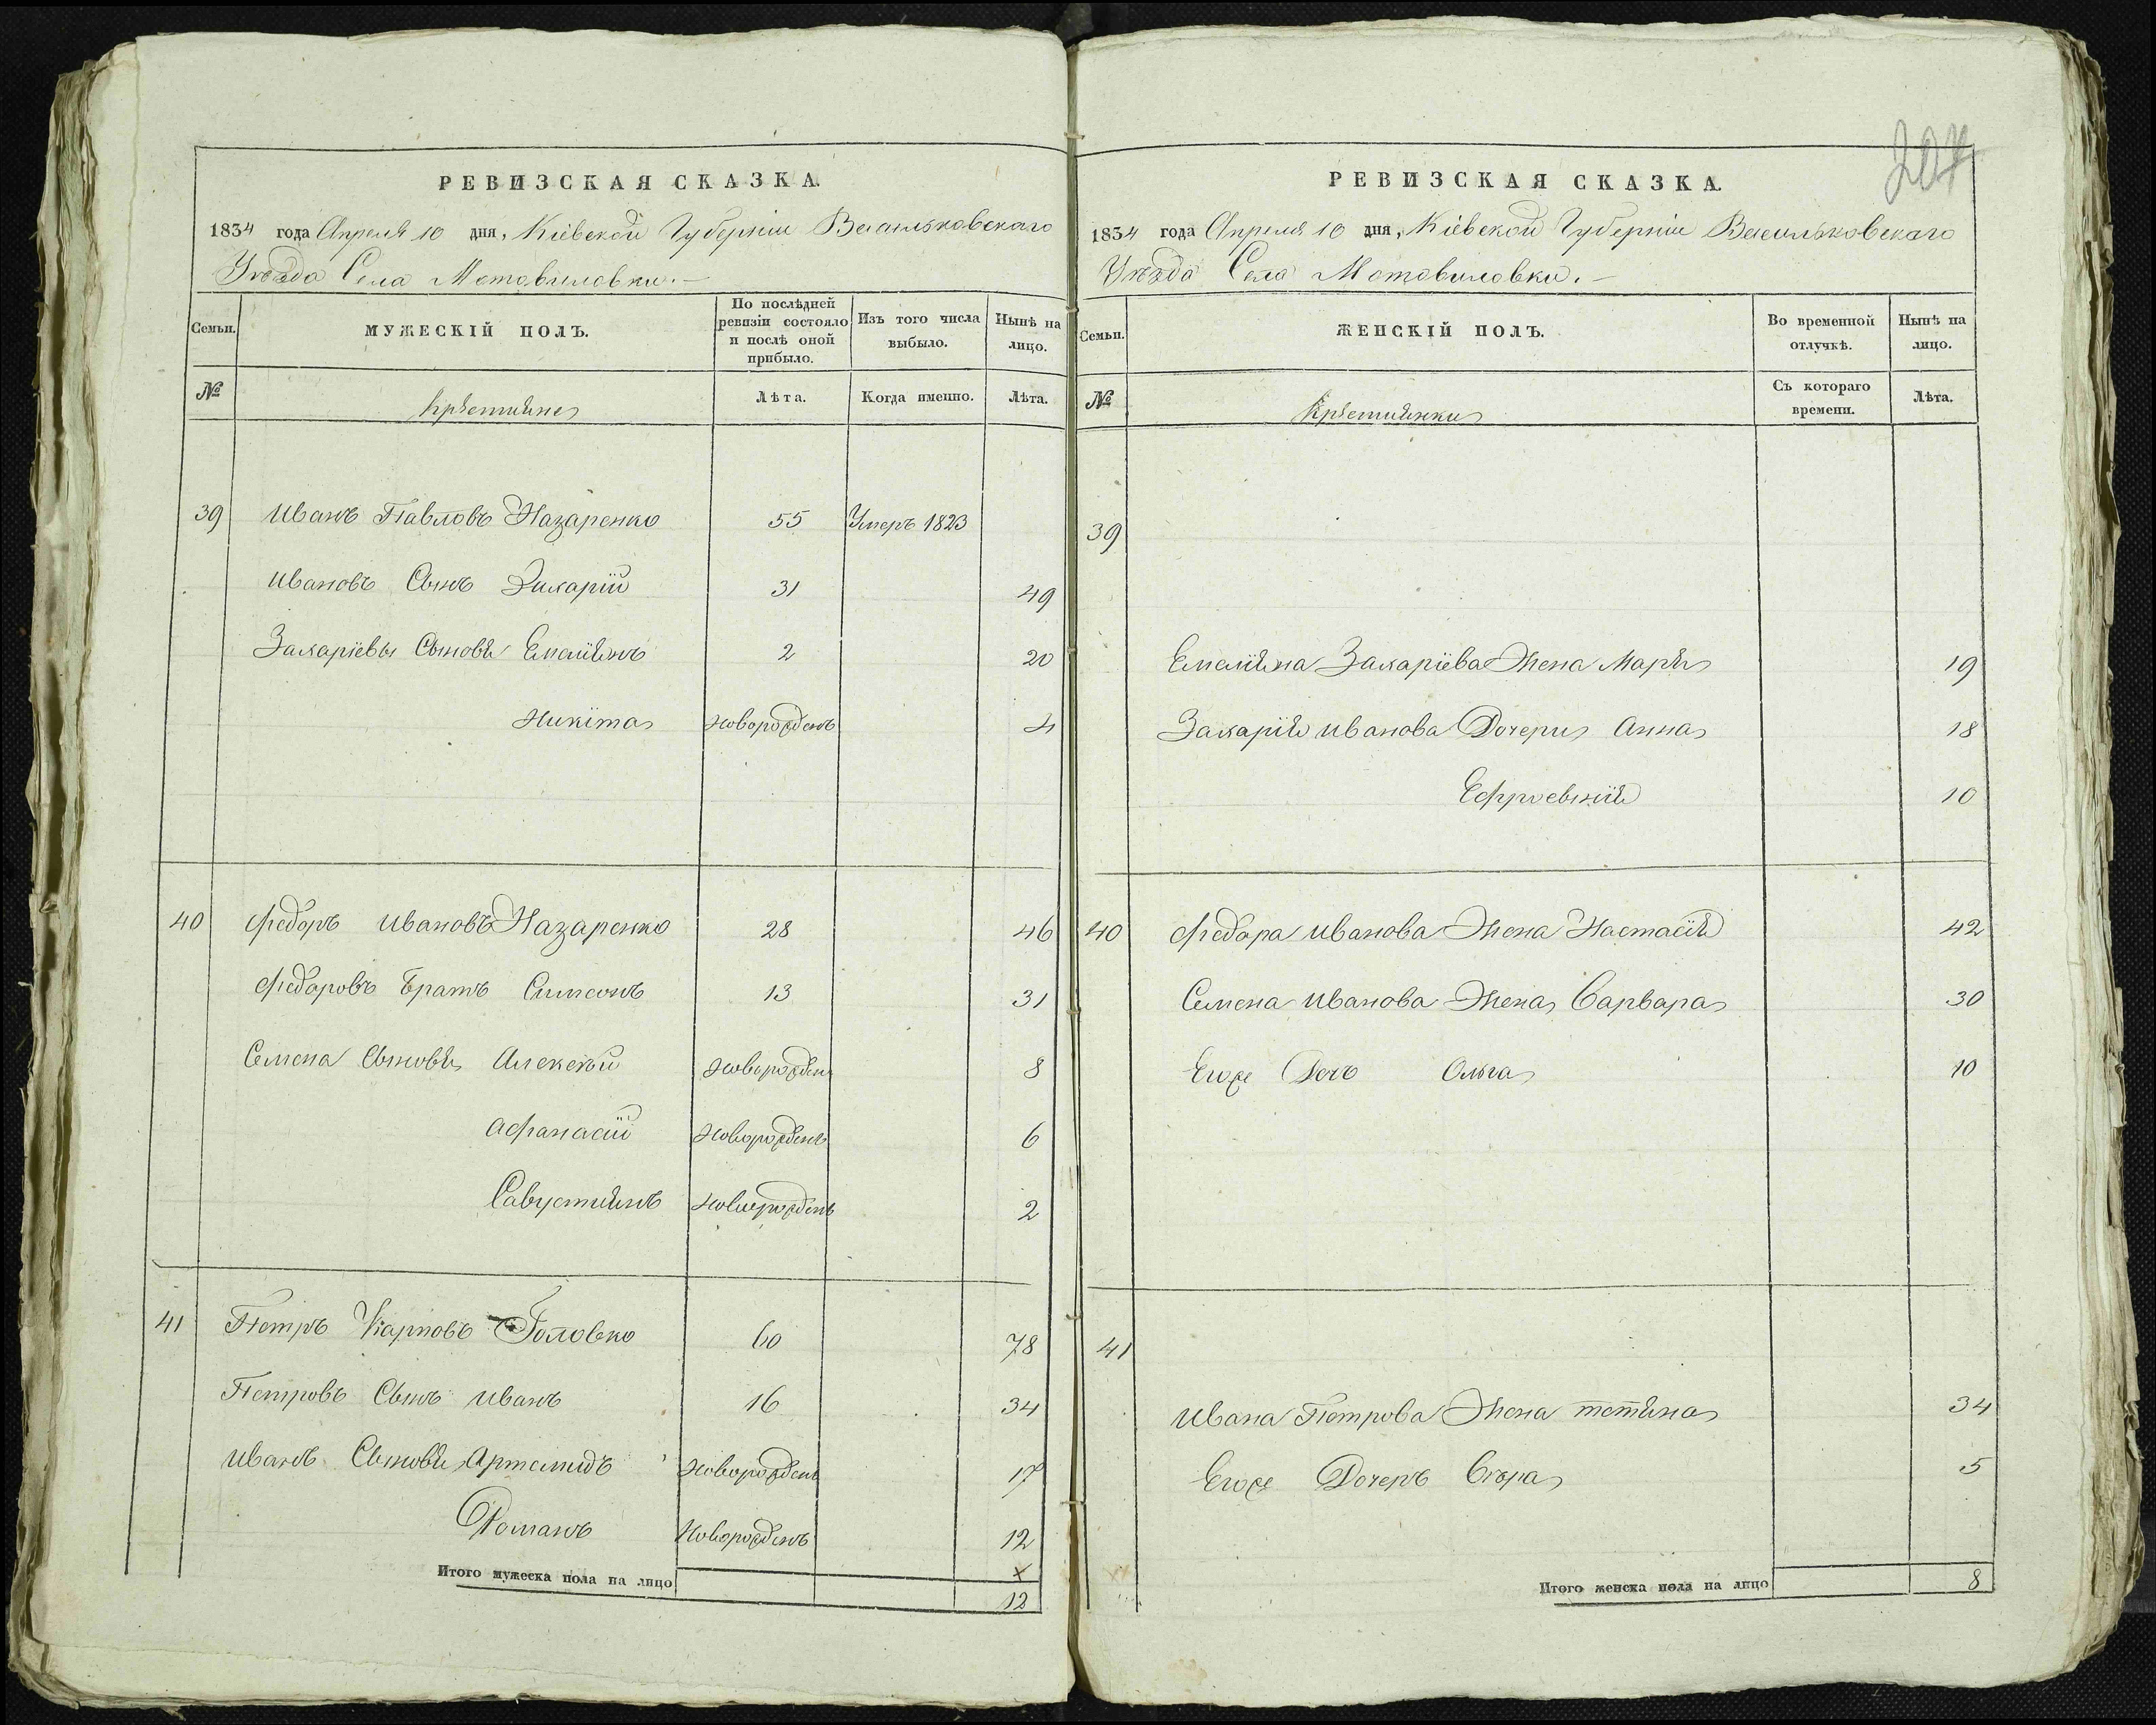 РЕВИЗСКАЯ СКАЗКА.
1834 года Апреля 10 дня, Кіевской Губерніи Васильковскаго
Уѣзда Села Мотовиловки.
Семьи.
МУЖЕСКІЙ ПОЛЪ.
По послѣдней ревизіи состояло и послѣ оной прибыло.
Изъ того числа выбыло.
Нынѣ на лицо.
№
Крѣстьяне
Лѣта.
Когда именно.
Лѣта.
39 Иванъ Павловъ Назаренко 55 Умеръ 1823
Ивановъ Сынъ Захарій 31 49
Захаріевы Сыновья Емелиянъ 2 20
Никита новорожденъ 4
40 Федоръ Ивановъ Назаренко 28 46
Федоровъ Братъ Симеонъ 13 31
Семена Сыновья Алексѣй новорожден 8
Афанасій новорожденъ 6
Савустиянъ новорожденъ 2
41 Петръ Карповъ Головко 60 78
Петровъ Сынъ Иванъ 16 34
Ивана Сыновья Артемидъ новорожденъ 17
Романъ новорожденъ 12
Итого мужеска пола на лицо 12
207
РЕВИЗСКАЯ СКАЗКА.
1834 года Апреля 10 дня, Кіевской Губерніи Васильковскаго
Уѣзда Села Мотовиловки.
Семьи.
ЖЕНСКІЙ ПОЛЪ.
Во временной отлучкѣ.
Нынѣ на лицо.
№
Крѣстьянки
Съ котораго времени.
Лѣта.
39
Емелияна Захаріева Жена Марья 19
Захарія Иванова Дочери Анна 18
Ефросинія 10
40 Федора Иванова Жена Настасія 42
Семена Иванова Жена Варвара 30
Егоже Дочь Ольга 10
41
Ивана Петрова Жена тетяна 34
Егоже Дочеръ Вѣра 5
Итого женска пола на лицо 8